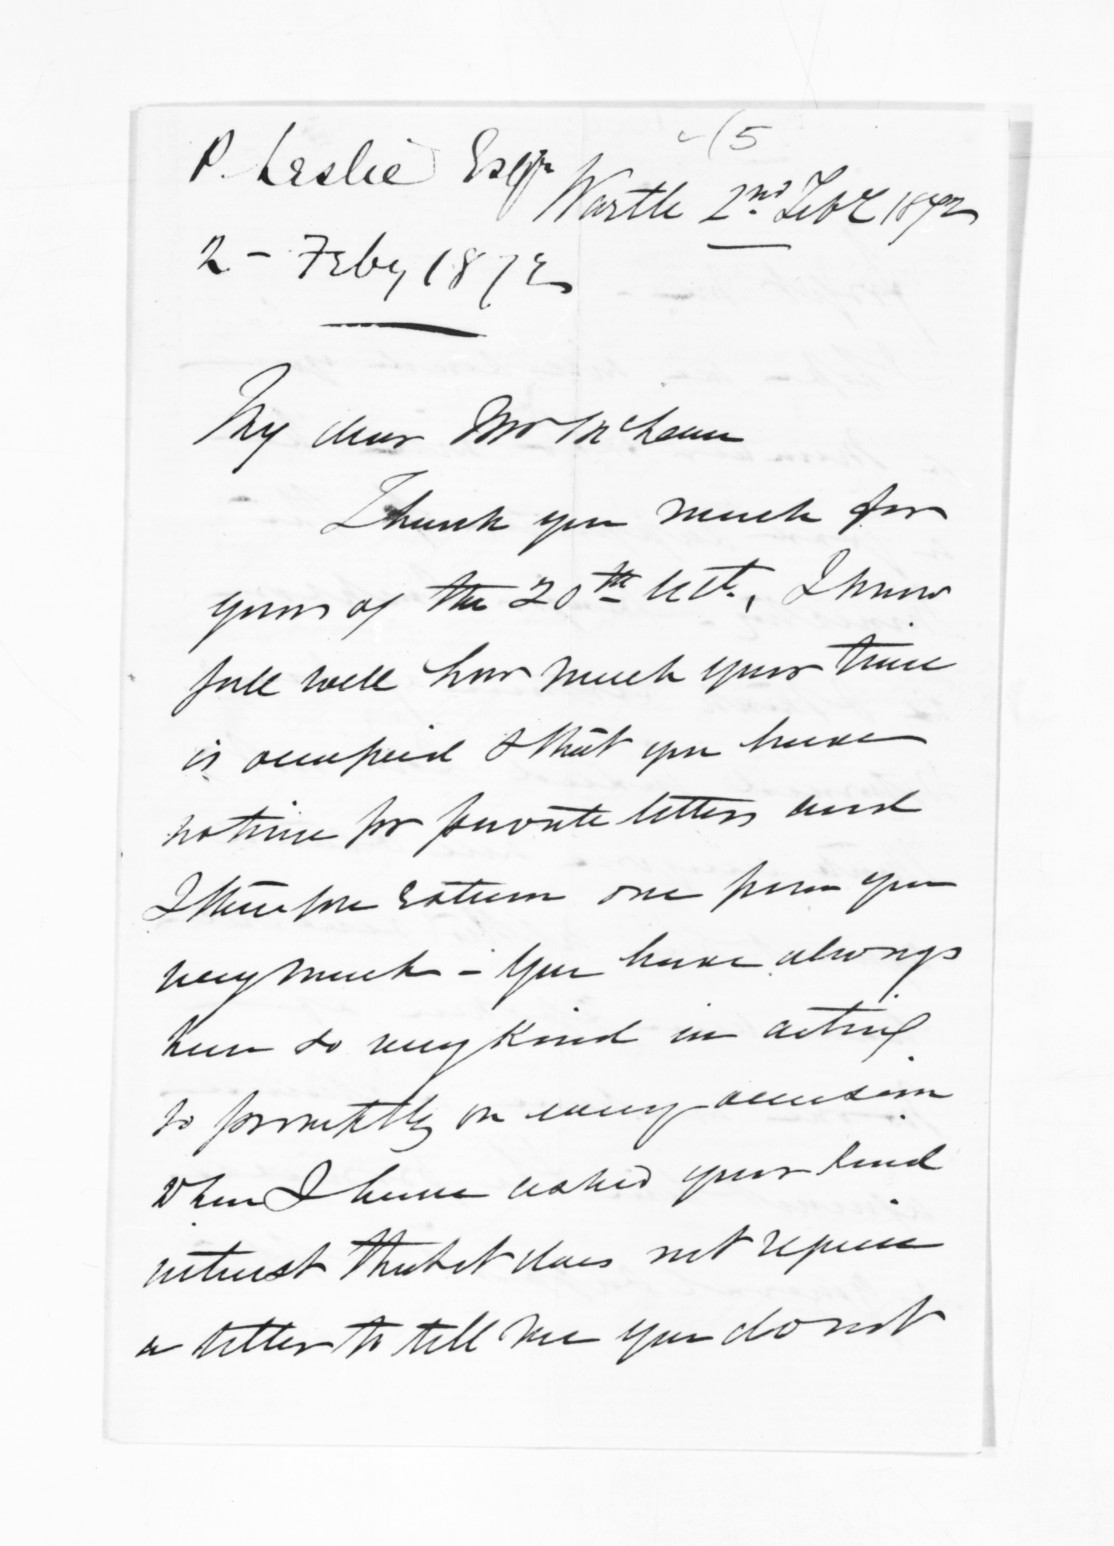 P. Leslie Esqr
(5
Warthe 2nd Feby 1872
2 - Feby 1872
My dear Mr McLean
Thank you much for
yours of the 20th Ult., I know
full well how much your time
is occupied & that you have
no time for private letters and
I therefore Esteem one from you
very much - You have always
been so very kind in acting
so promptly on every occasion
when I have asked your kind
interest that it does not require
a letter to tell me you do not